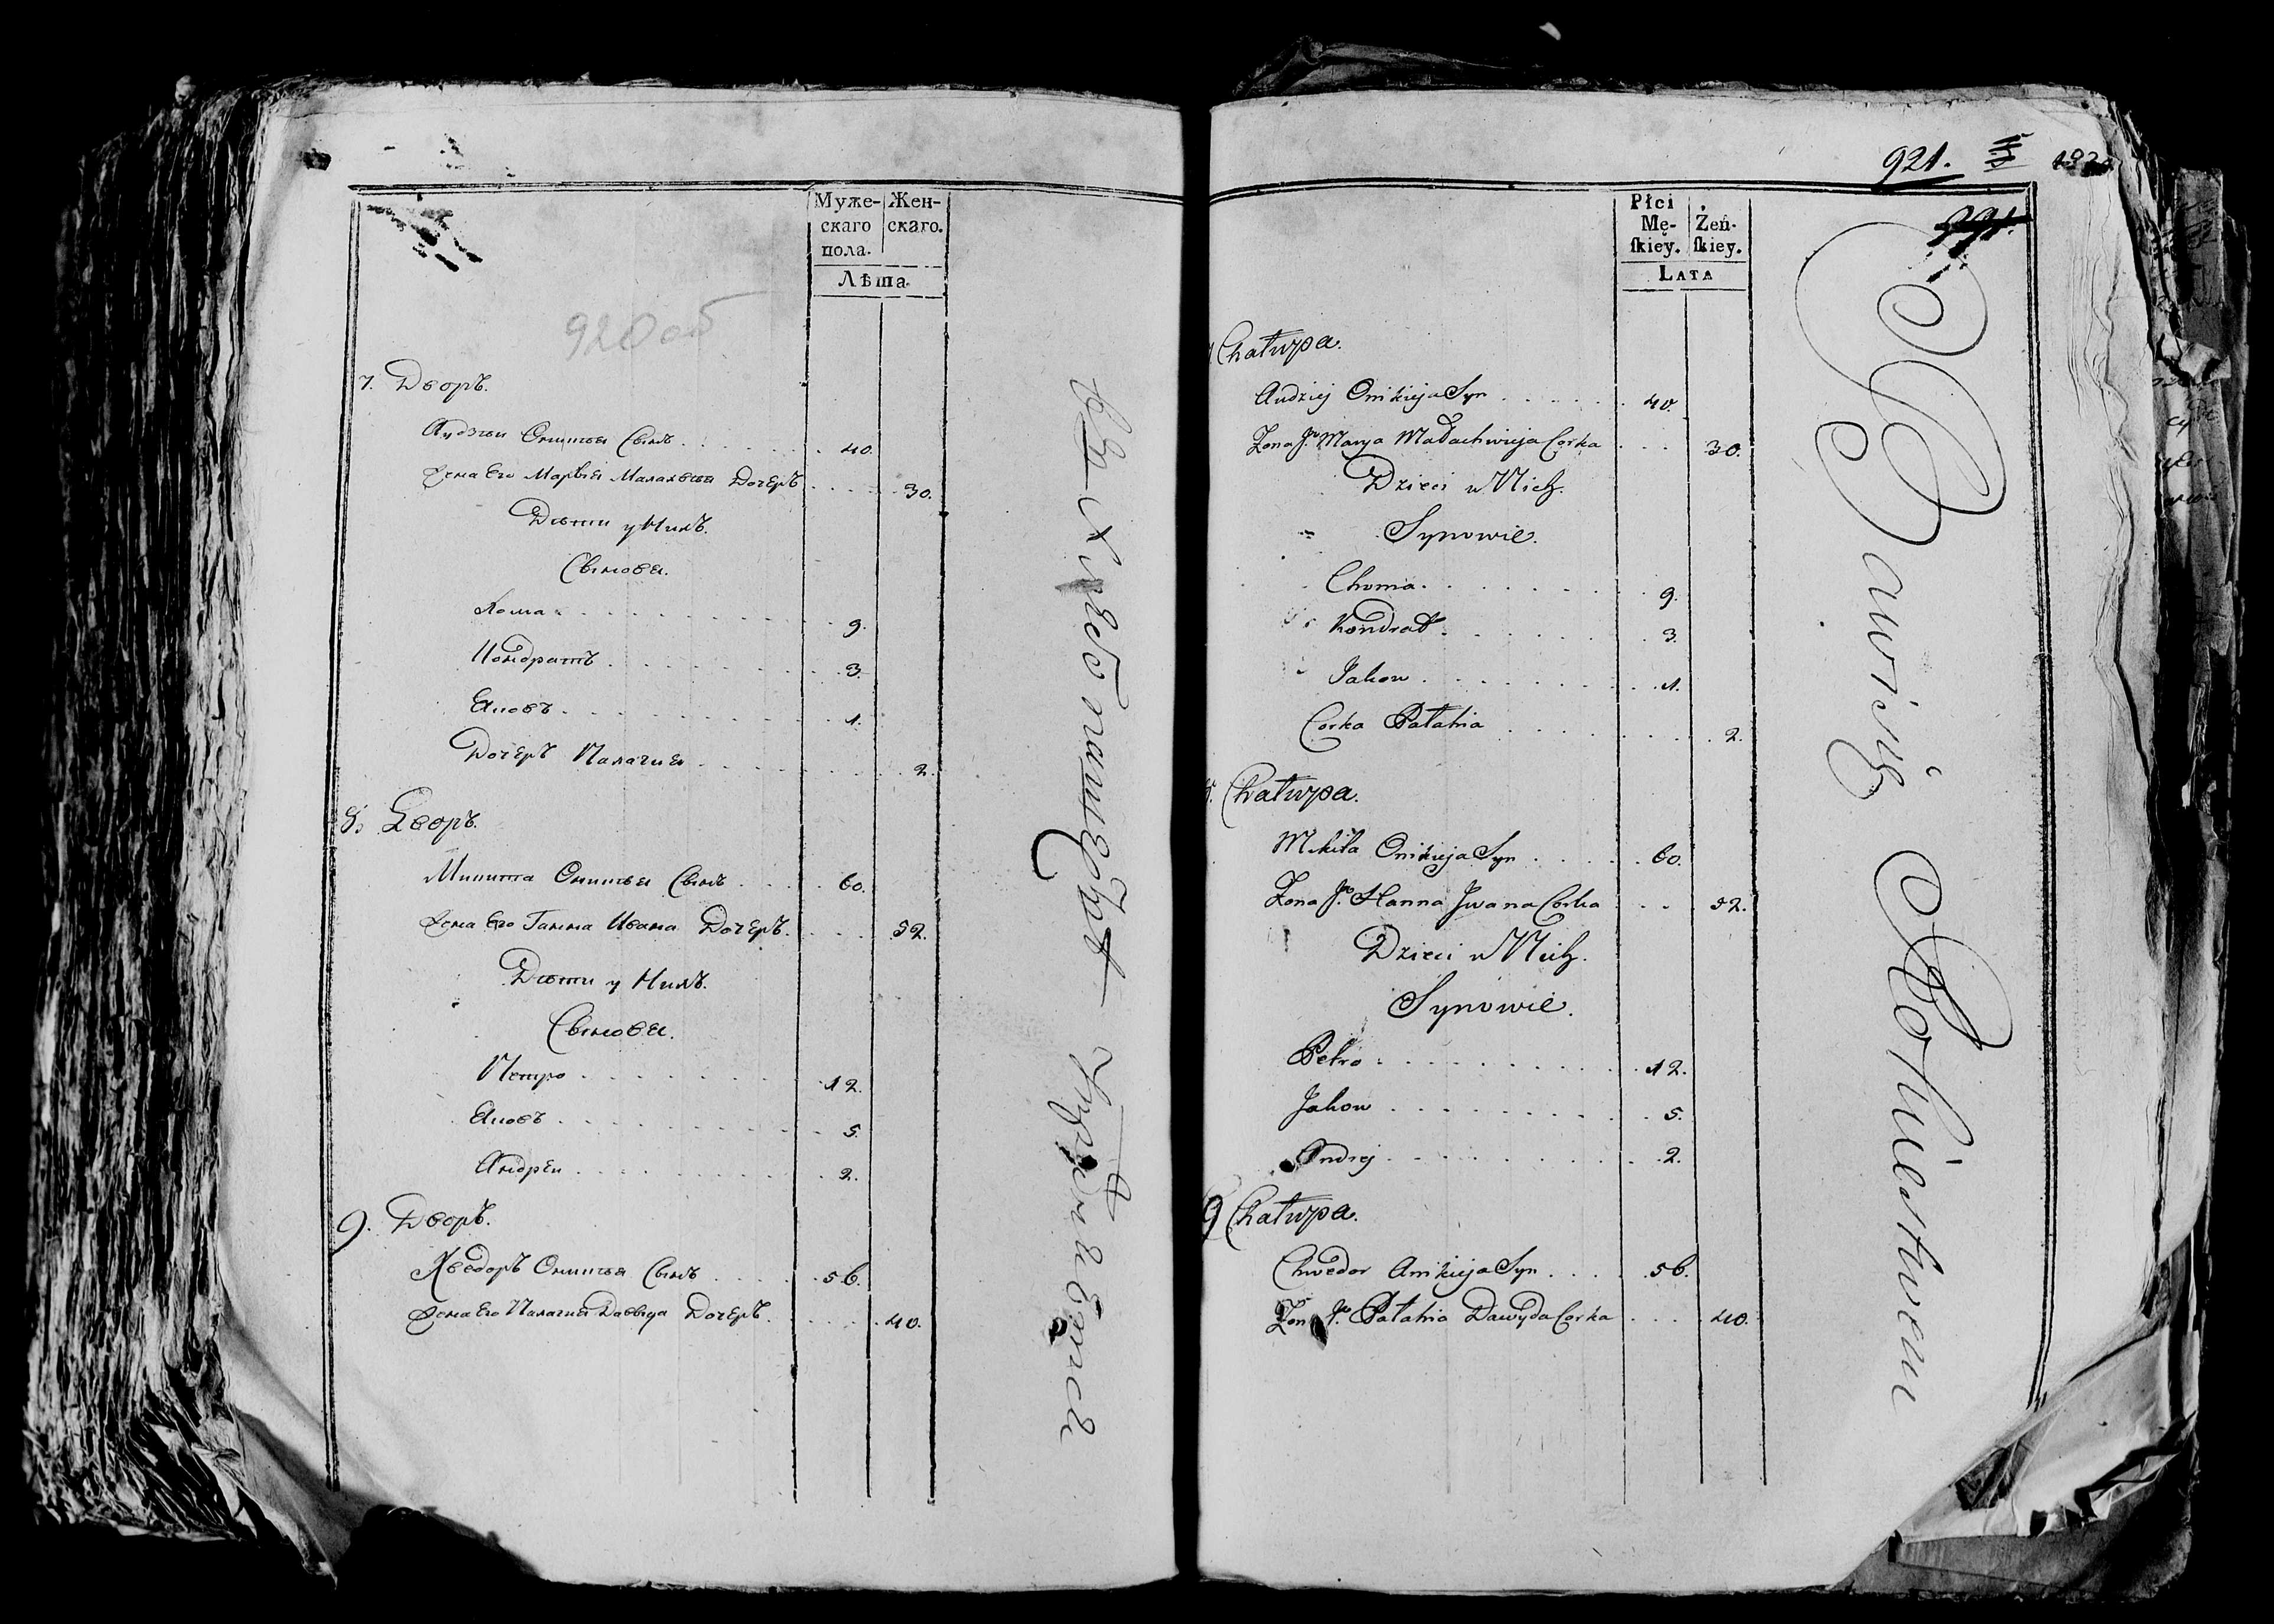 Муже-
скаго
пола.
Жен-
скаго.
Лѣта.
920 об
7. Дворъ.
Андзеи Оникея Сынъ . . . . . 40.
Жена Его Марыя Малахвея Дочеръ . . . . 30.
Дѣти у Нихъ.
Сынове.
Хома . . . . . . . . . 9.
Кондратъ . . . . . . . . 3.
Яковъ . . . . . . . . . 1.
Дочеръ Палагия . . . . . . . . 2.
8. Дворъ.
Микита Оникея Сынъ . . . . 60.
Жена Его Ганна Ивана Дочеръ . . . . 52.
Дѣти у Нихъ.
Сынове.
Петро . . . . . . . . 12.
Яковъ . . . . . . . . 5.
Андреи . . . . . . . . 2.
9. Дворъ.
Хведоръ Оникея Сынъ . . . . . 56.
Жена Его Палагия Давыда Дочеръ . . . . . 40.
921.
Płci
Mę-
ſkiey.
Żeń-
ſkiey.
LATA
Chałupa.
Andziej Onikieja Syn . . . . . . 40.
Zona Jº Marya Małachwieja Corka . . . 30.
Dzieci u Nich.
Synowie.
Choma . . . . . . . . 9.
Kondrat . . . . . . . 3.
Jakow . . . . . . . . 1.
Corka Pałahia . . . . . . . . 2.
8. Chałupa.
Mikita Onikieja Syn . . . . . 60.
Zona Jº Hanna Jwana Corka . . . 52.
Dzieci u Nich.
Synowie.
Petro . . . . . . . . . 12.
Jakow . . . . . . . . . 5.
Andrej . . . . . . . . . 2.
9 Chałupa.
Chwedor Anikieja Syn . . . . 56.
Zona Jº Pałahia Dawyda Corka . . . . 40.